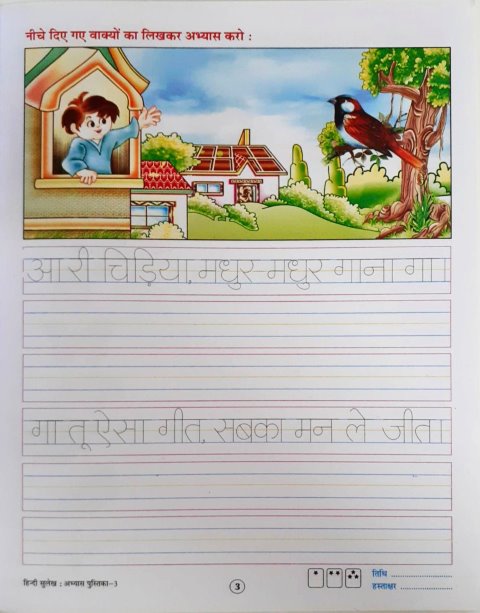 नीचे दिए गए वाक्यों का लिखकर अभ्यास करो :
आ री चिड़िया, मधुर-मधुर गाना गा।
गा तू ऐसा गीत, सबका मन ले जीत।
हिन्दी सुलेख : अभ्यास पुस्तिका–3
3
तिथि ........................
हस्ताक्षर ....................